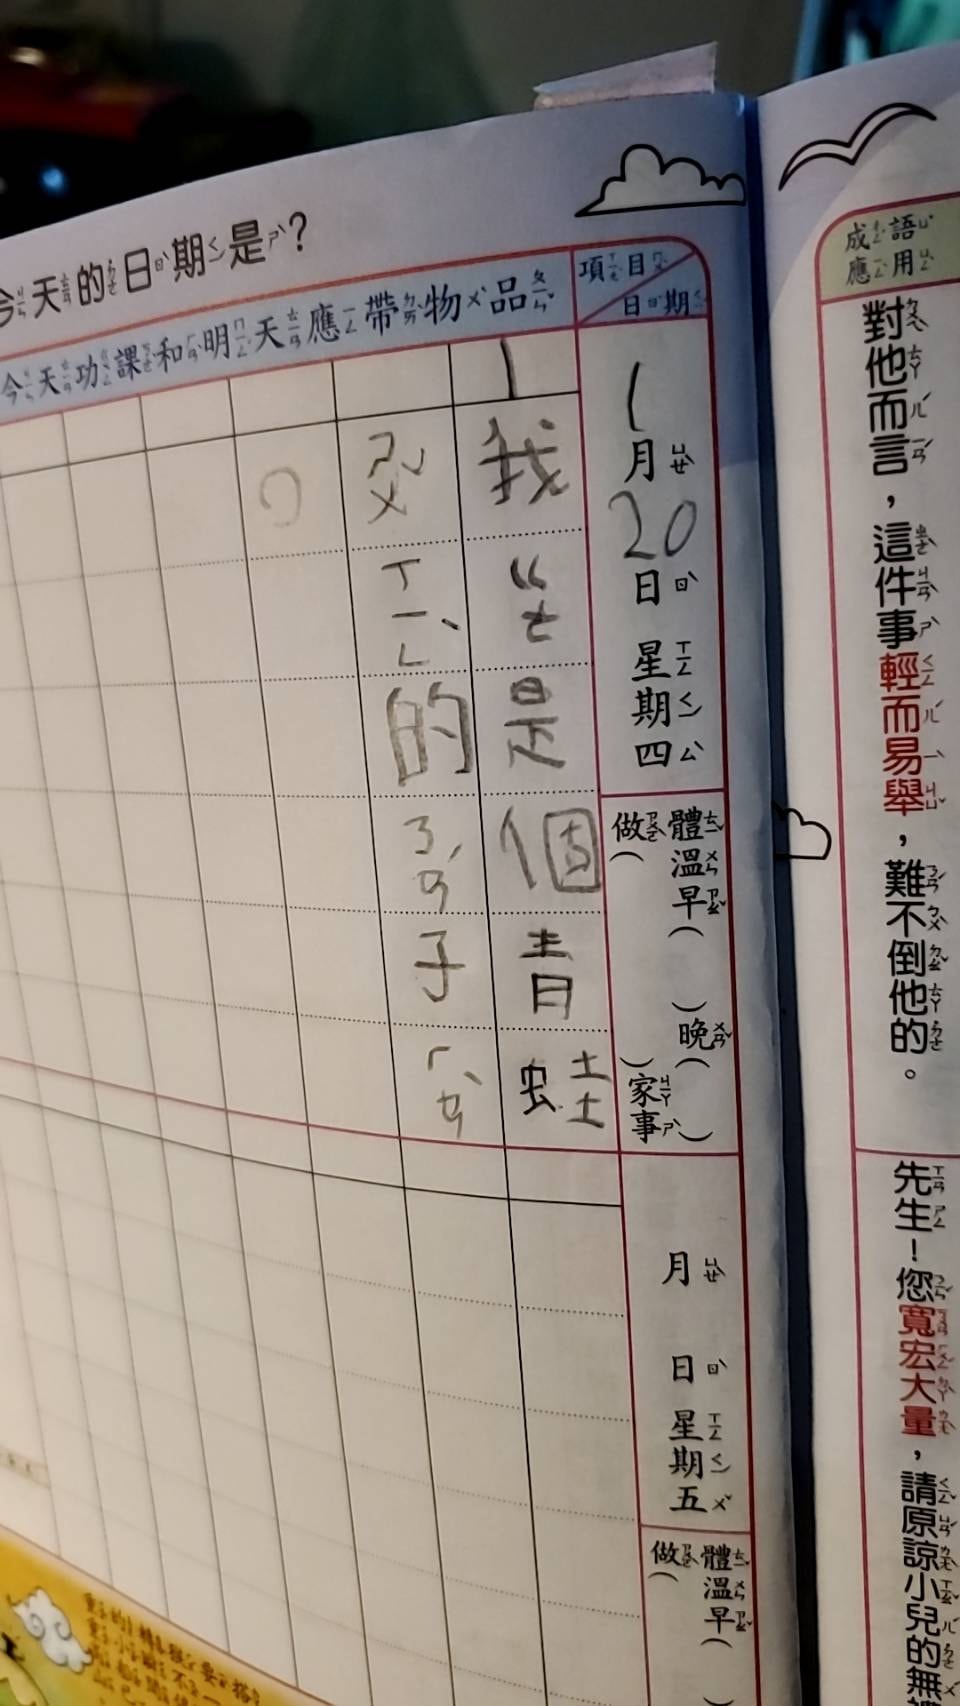 今天的日期是?
項目
日期
今天功課和明天應帶物品
1月20日星期四
體溫早( )晚( )
做( )家事
1
我ㄍㄜ是個青蛙
ㄗㄨˇㄒㄧㄥˋ的ㄋㄢˊ子ㄏㄢˋ
。
月 日星期五
體溫早(
做(
成語應用
對他而言,這件事輕而易舉,難不倒他的。
先生!您寬宏大量,請原諒小兒的無禮